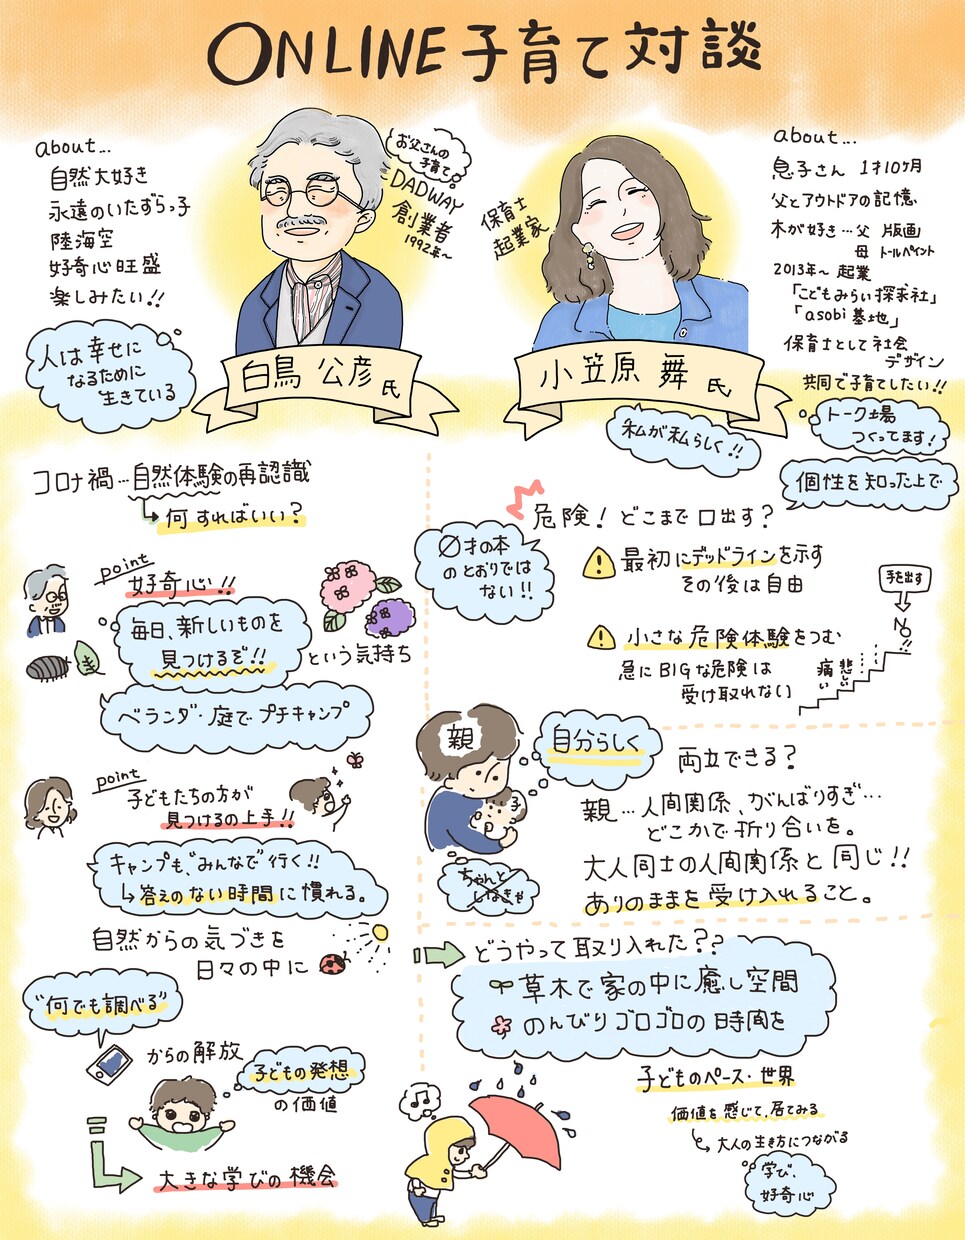 ONLINE 子育て 対談
about...
自然大好き
永遠のいたずらっ子
陸海空
好奇心旺盛
楽しみたい!!
お父さんの
子育て♡
DADWAY
創業者
1992年〜
保育士
起業家
about...
息子さん 1才10ヶ月
父とアウトドアの記憶
木が好き…父 版画
母 トールペイント
2013年〜 起業
「こどもみらい探求社」
「asobi基地」
保育士として社会
デザイン
共同で子育てしたい!!
人は幸せに
なるために
生きている
白鳥 公彦 氏
小笠原 舞 氏
私が私らしく!!
トーク場
つくってます!
個性を知った上で
コロナ禍…自然体験の再認識
何すればいい?
point
好奇心!!
毎日、新しいものを
見つけるぞ!!
という気持ち
ベランダ・庭でプチキャンプ
point
子どもたちの方が
見つけるの上手!!
キャンプも"みんなで"行く!!
答えのない時間に慣れる。
自然からの気づきを
日々の中に
"何でも調べる"
からの解放
子どもの発想
の価値
大きな学びの機会
危険! どこまで口出す?
0才の本
のとおりでは
ない!!
最初にデッドラインを示す
その後は自由
手を出す
NO
小さな危険体験をつむ
急にBIGな危険は
受け取れない
痛い
悲しい
親
子
自分らしく
ちゃんと
しなきゃ
両立できる?
親…人間関係、がんばりすぎ…
どこかで折り合いを。
大人同士の人間関係と同じ!!
ありのままを受け入れること。
どうやって取り入れた??
草木で家の中に癒し空間
のんびりゴロゴロの時間を
子どものペース・世界
価値を感じて、居てみる
大人の生き方につながる
学び、
好奇心